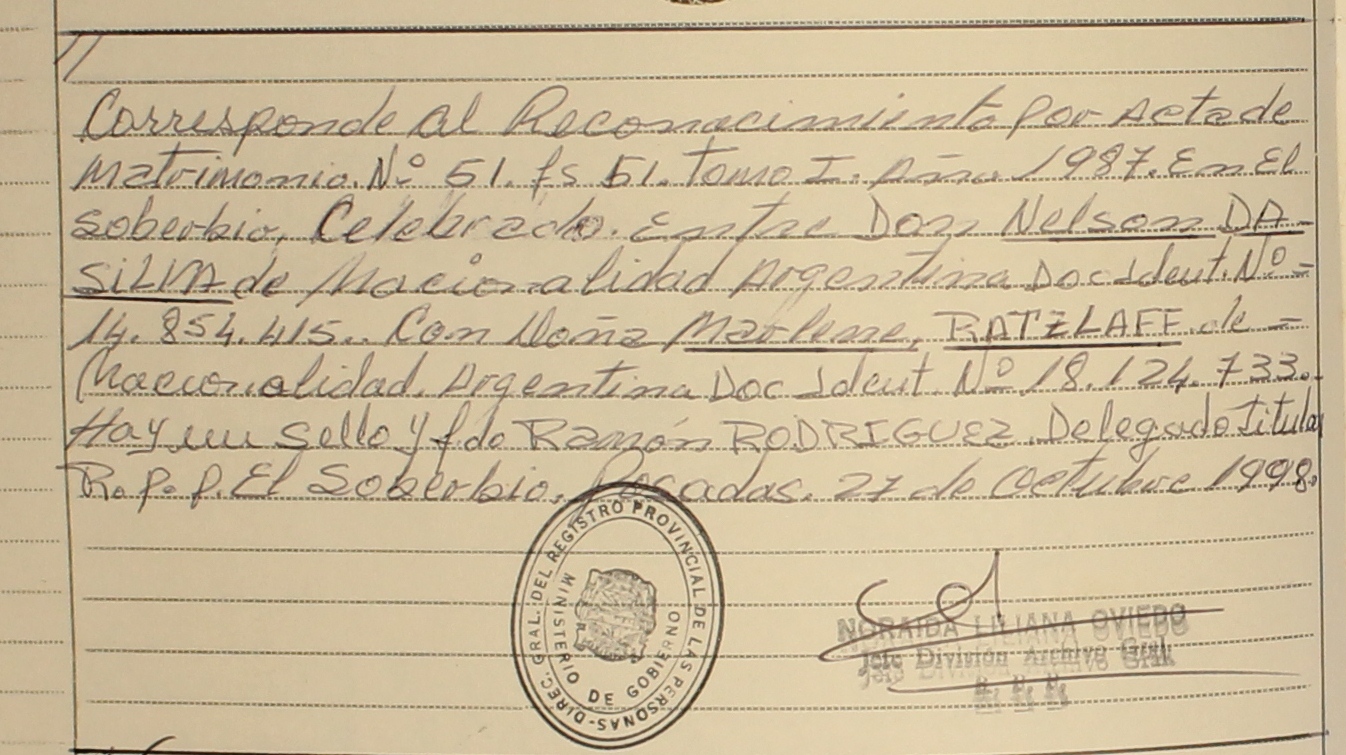 //
Corresponde al Reconocimiento por Acta de
Matrimonio. Nº 51. fs 51. Tomo I. Año 1987. En El
Soberbio, Celebrado. Entre Don Nelson DA
SILVA de Nacionalidad Argentina Doc Ident. Nº -
14.854.415.. Con Doña Marlene, RATZLAFF de -
Nacionalidad. Argentina Doc Ident. Nº 18.124.733.
Hay un Sello y fdo Ramón RODRIGUEZ. Delegado titular
R.P.P. El Soberbio. Posadas. 27 de Octubre 1998.
DIREC. GRAL. DEL REGISTRO PROVINCIAL DE LAS PERSONAS-
MINISTERIO DE GOBIERNO
NORAIDA LILIANA OVIEDO
Jefe División Archivo Gral